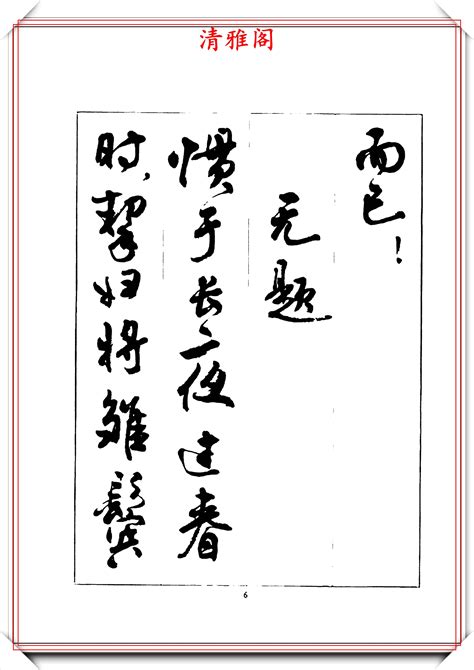 清雅阁
而已！
无题
惯于长夜过春
时，挈妇将雏鬓
6